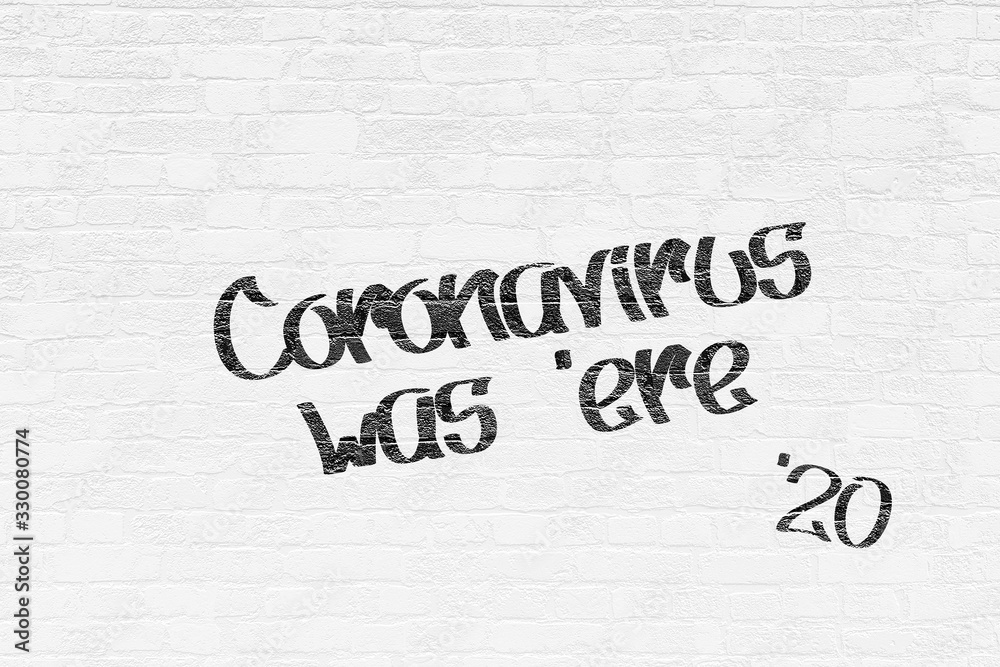 Coronavirus
was 'ere
'20
Adobe Stock | #330080774